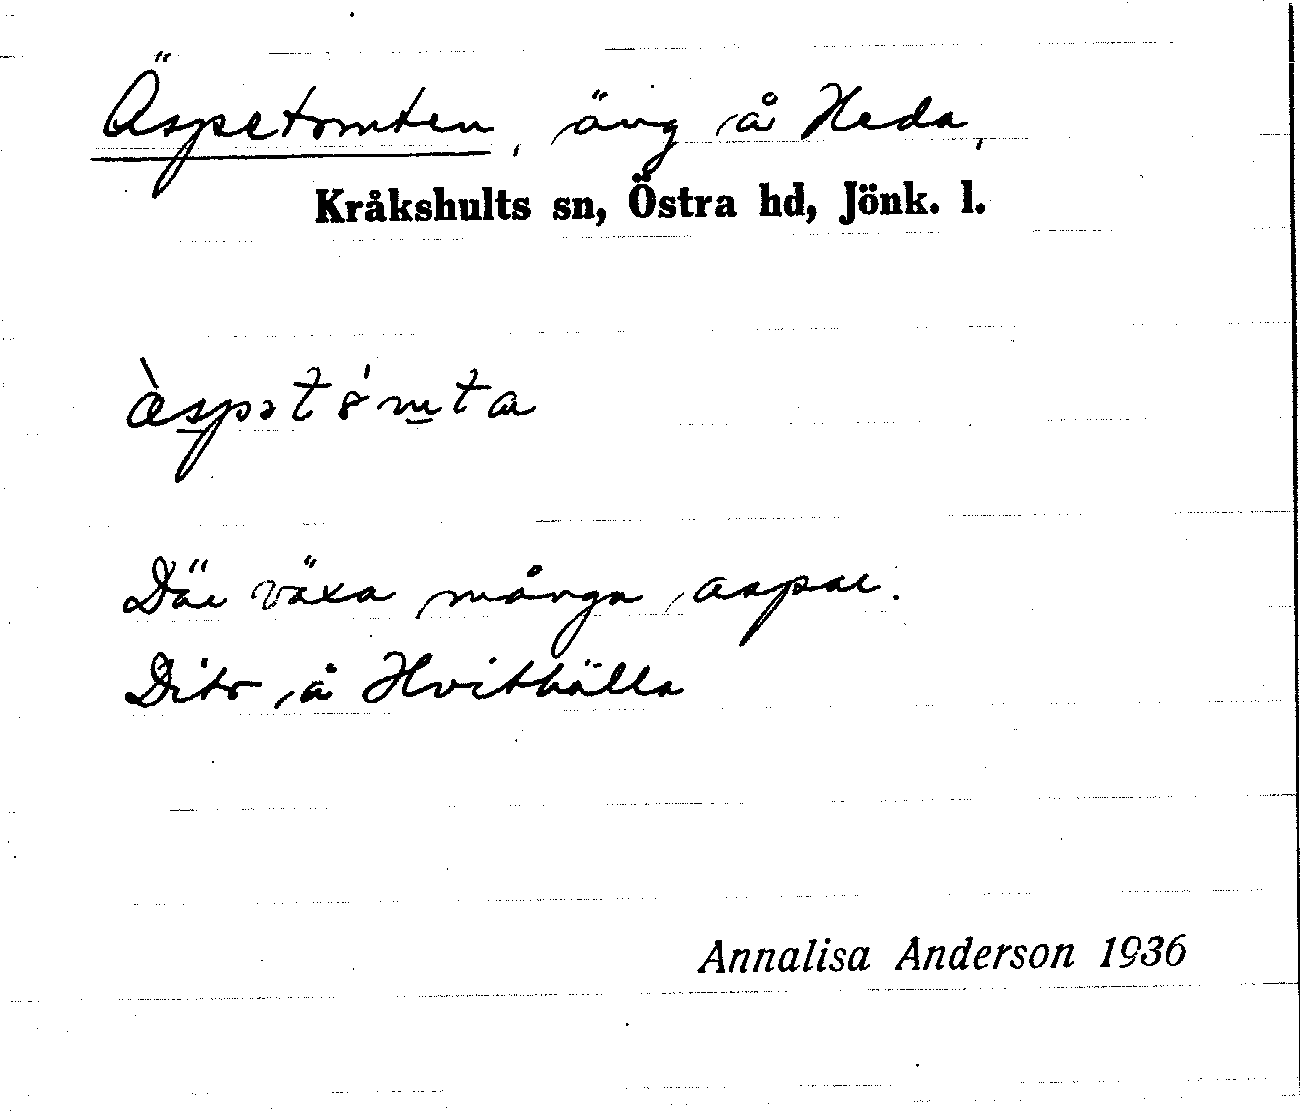 Äspetomten, äng å Heda,
Kråkshults sn, Östra hd, Jönk. l.
Där växa många aspar.
Dito å Hvithälla
Annalisa Anderson 1936